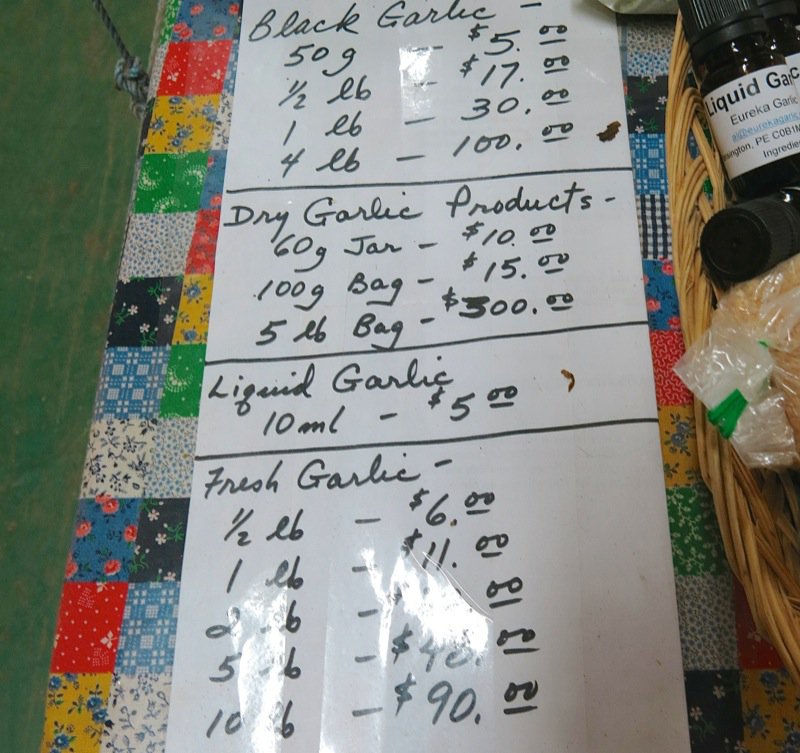 Black Garlic -
50g - $5.00
1/2 lb - $17.00
1 lb - 30.00
4 lb - 100.00
Dry Garlic Products -
60g Jar - $10.00
100g Bag - $15.00
5 lb Bag - $300.00
Liquid Garlic
10ml - $5 00
Fresh Garlic -
1/2 lb - $6.00
1 lb - $11.00
2 lb - 00
5 lb - $ .00
10 lb - $90.00
Liquid Ga
Eureka Garlic
PE C0B1M